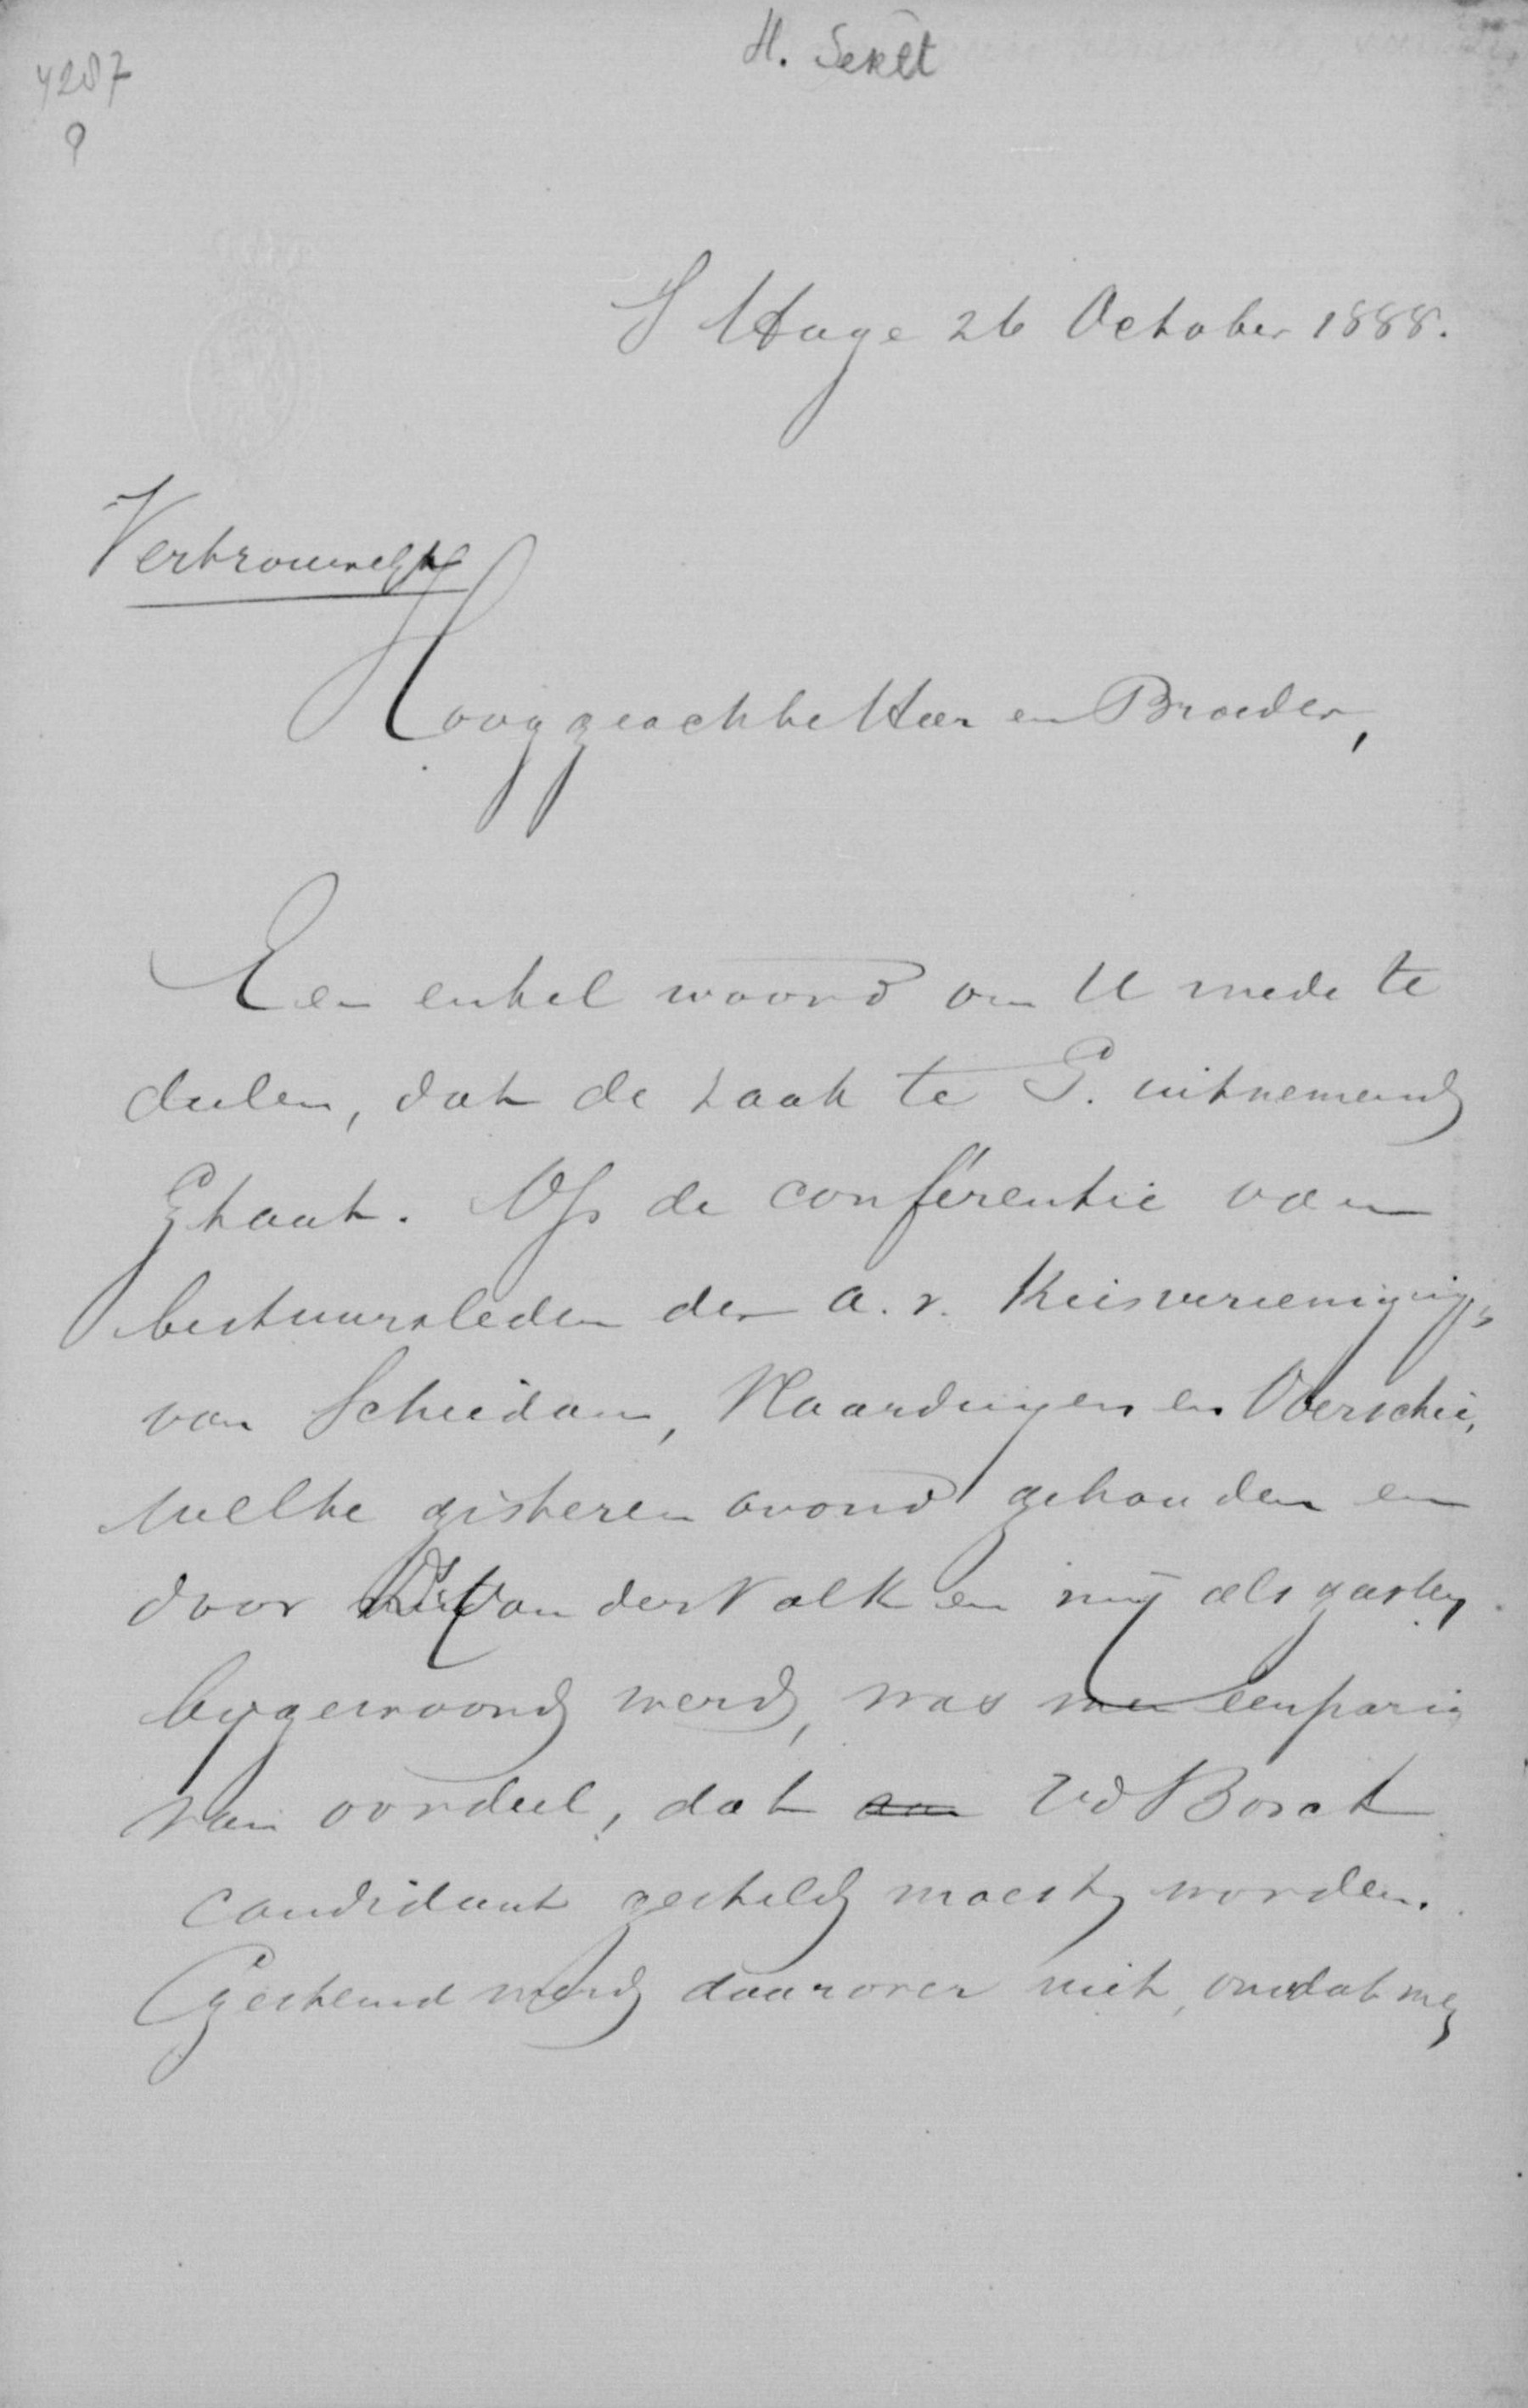 H. Seret
4287
9
S Hage 26 October 1888.
Vertrouwelijk
Hooggeachte Heer en Broeder,
Een enkel woord om U mede te
deelen, dat de zaak te S. uitnemend
staat. Op de conferentie van
bestuursleden der a. r. Kiesvereenigings
van Schiedam, Vlaardingen en Overschie,
welke gisteren avond gehouden en
door Ds Van der Valk en mij als gasten
bijgewoond werd, was men eenparig
van oordeel, dat aan Vd Borch
candidaat gesteld moest worden.
Gestemd werd daarover niet, omdat men